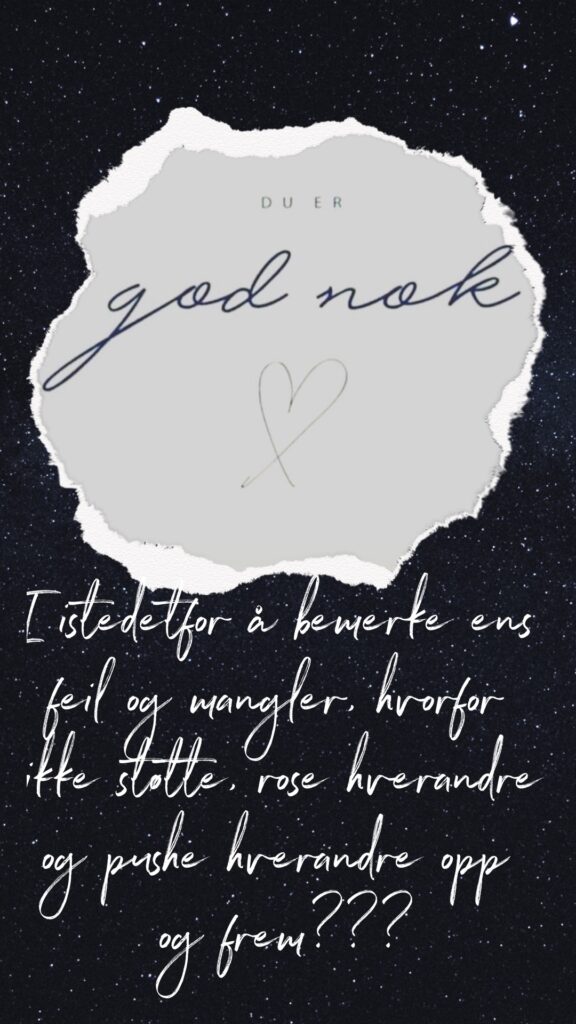 DU ER
god nok
I istedetfor å bemerke ens
feil og mangler, hvorfor
ikke støtte, rose hverandre
og pushe hverandre opp
og frem???